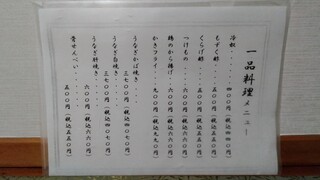 一品料理メニュー
冷奴・・・・・四〇〇円（税込四四〇円）
もずく酢・・・・四〇〇円（税込四四〇円）
くらげ酢・・・・五〇〇円（税込五五〇円）
つけもの・・・・六〇〇円（税込六六〇円）
鶏のから揚げ・・六〇〇円（税込六六〇円）
かきフライ・・・九〇〇円（税込九九〇円）
うなぎかば焼き・・
三七〇〇円（税込四〇七〇円）
うなぎ白焼き・・・
三七〇〇円（税込四〇七〇円）
うなぎ肝焼き・・・
六〇〇円（税込六六〇円）
骨せんべい・・・・
五〇〇円（税込五五〇円）